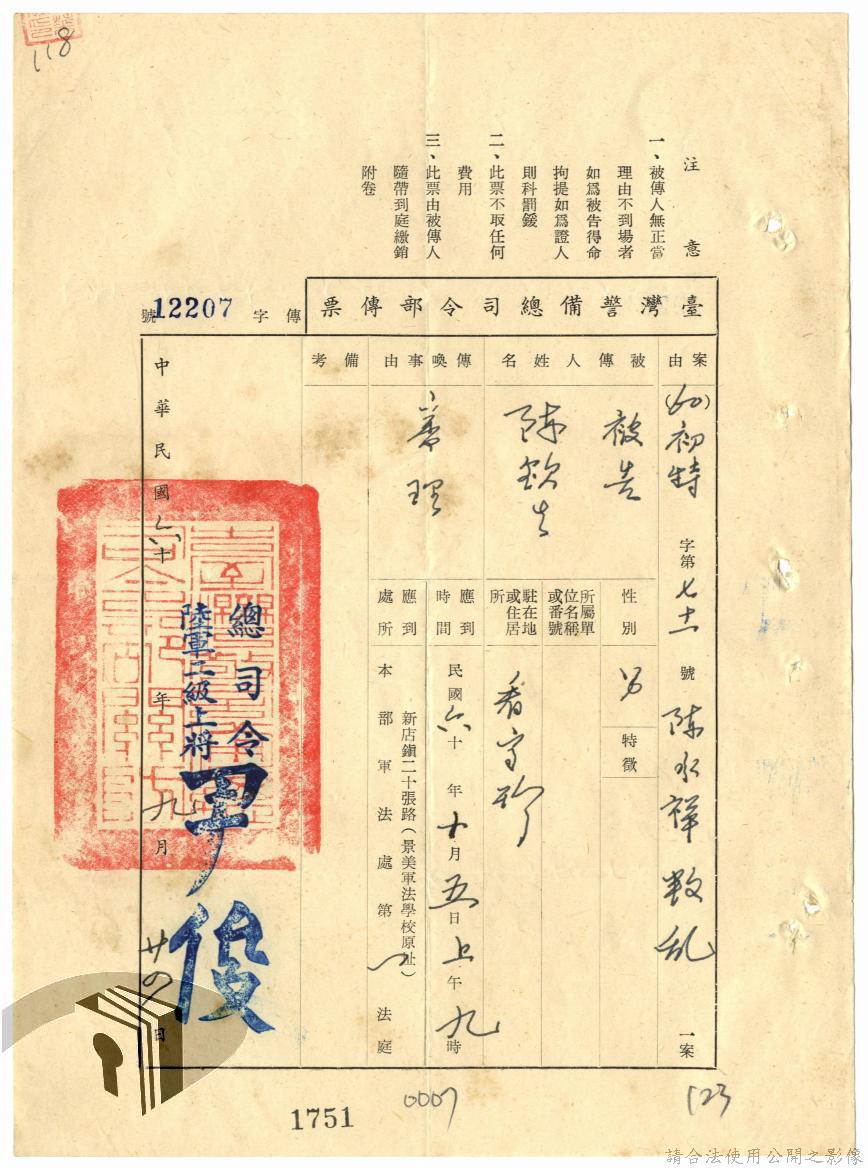 118
注意
一、被傳人無正當
理由不到場者
如爲被告得命
拘提如爲證人
則科罰鍰
二、此票不取任何
費用
三、此票由被傳人
隨帶到庭繳銷
附卷
臺灣警備總司令部傳票
傳字
12207
號
案由
(60)初特字第七十一號陳水祥叛亂一案
被傳人姓名
被告
陳欽生
性別
男
特徵
所屬單位名稱或番號
駐在地或住居所
看守所
傳喚事由
審理
應到時間
民國六十年十月五日上午九時
應到處所
新店鎮二十張路(景美軍法學校原址)
本部軍法處第一法庭
備考
中華民國六十年九月廿四日
總司令
陸軍二級上將
尹俊
1751
0007
123
請合法使用公開之影像